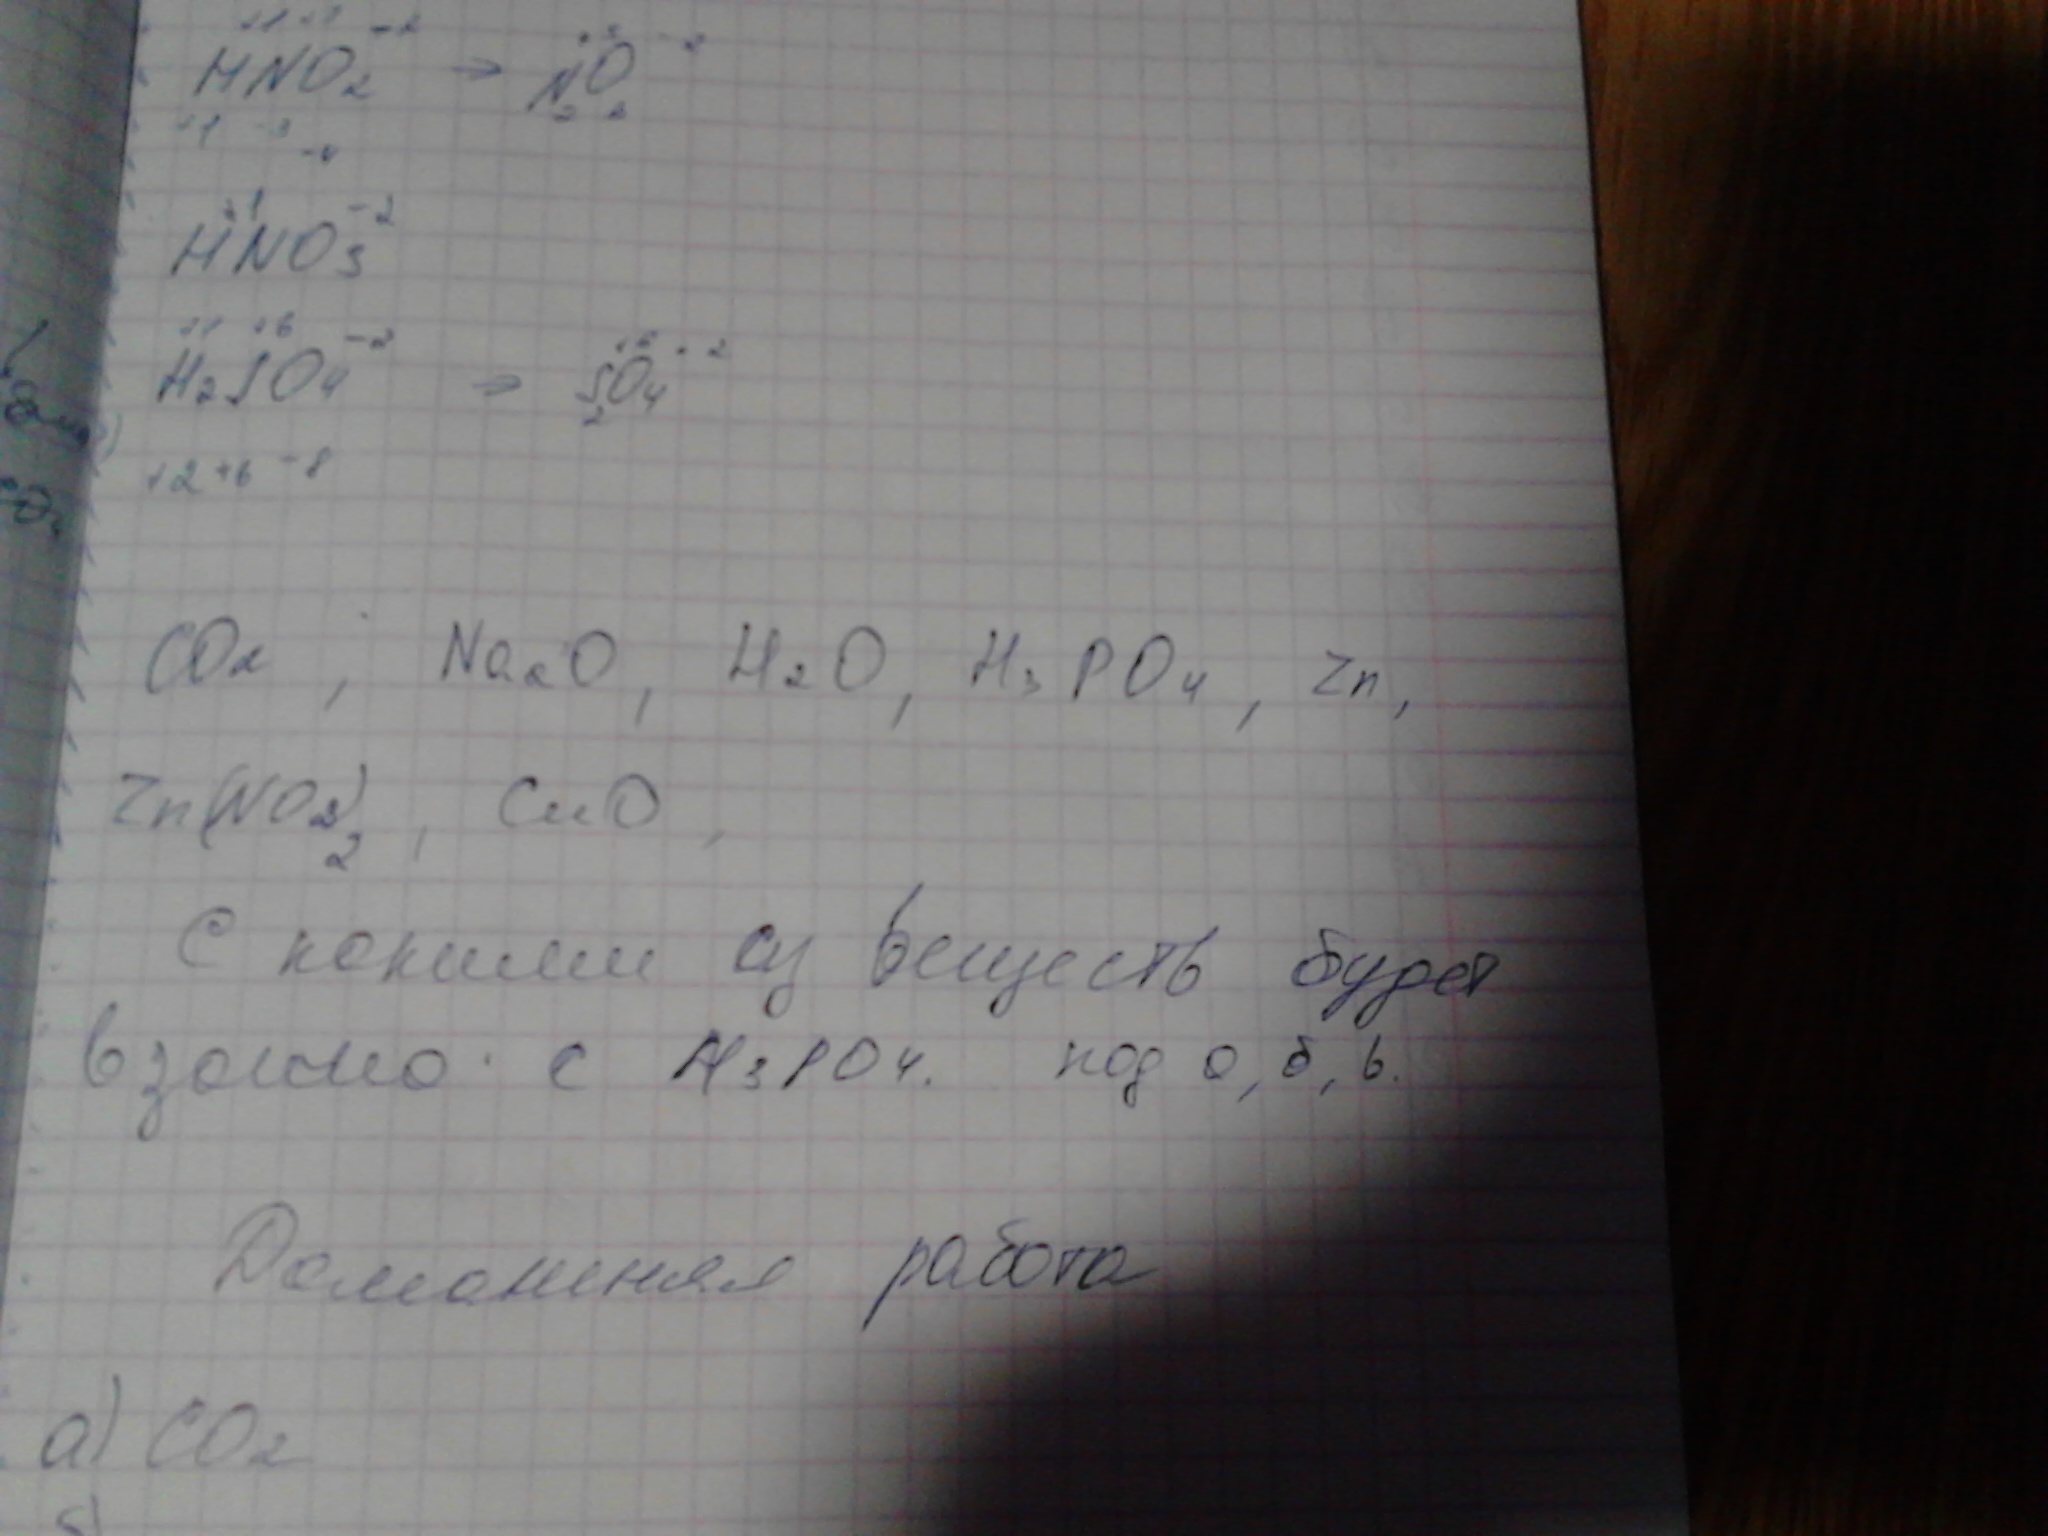 +1 +3 -2
HNO₂ → N₂O₂ -2
HNO₃ +1 -2
+1 +6 -2
H₂SO₄ → S₂O₄ +6 -2
+2 +6 -8
CO₂, Na₂O, H₂O, H₃PO₄, Zn,
Zn(NO₂)₂, CuO,
С какими из веществ будет
взаимо. с H₃PO₄. под а, б, в.
Домашняя работа
а) CO₂
б)